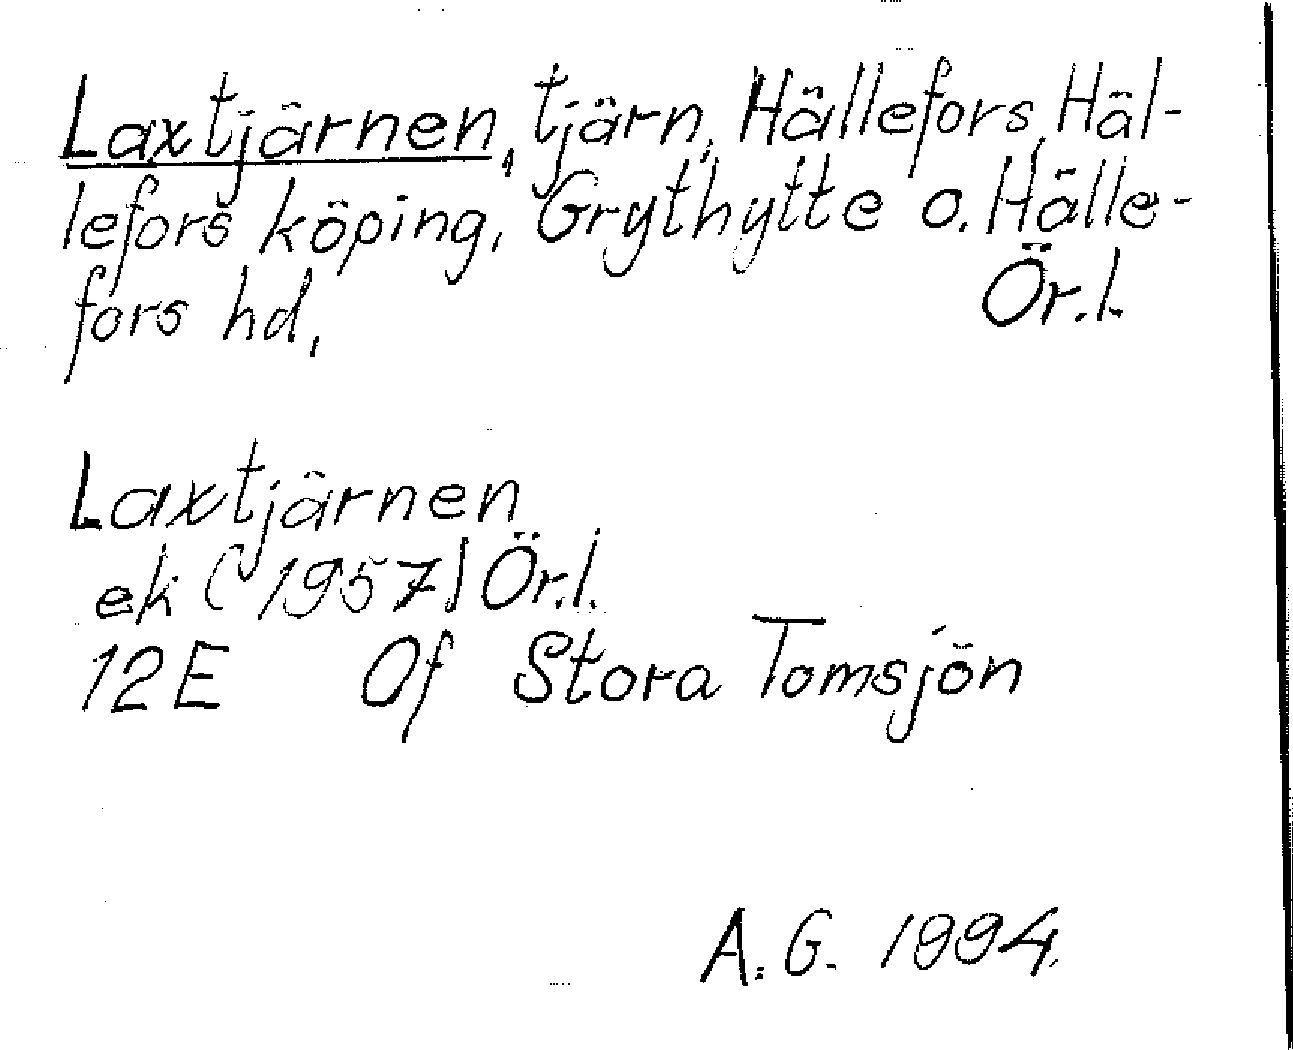 Laxtjärnen, tjärn, Hällefors, Häl-
lefors köping, Grythytte o. Hälle-
fors hd, Ör.l.
Laxtjärnen
ek (1957) Ör.l.
12E Of Stora Tomsjön
A.G. 1994.